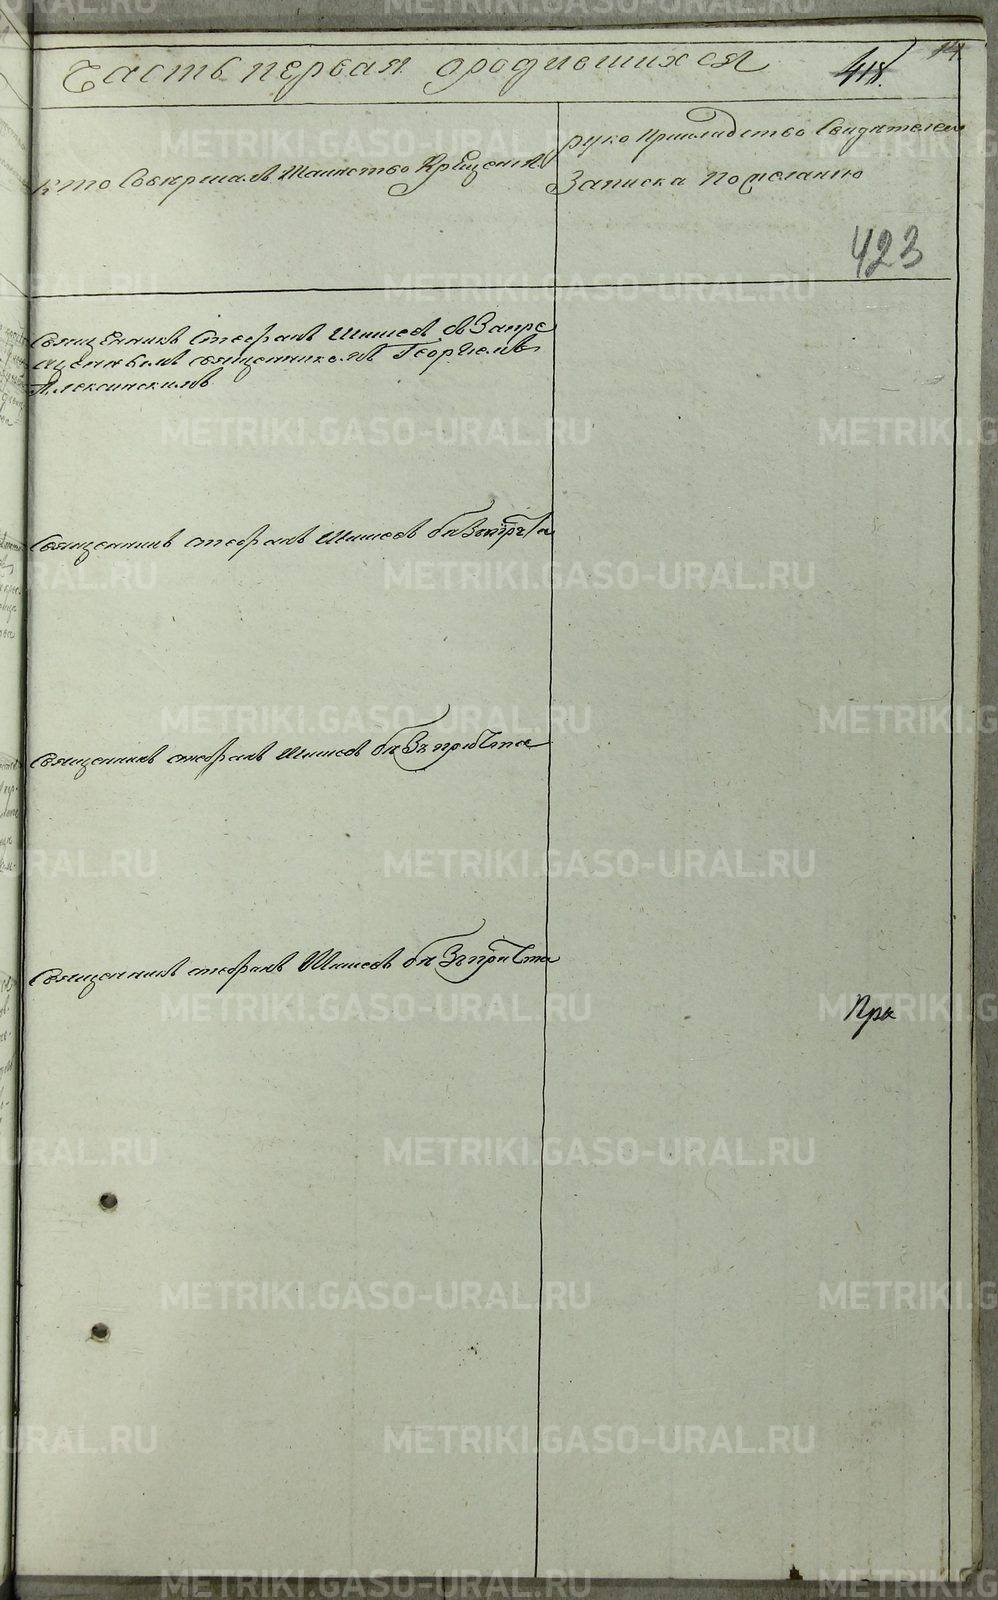 Часть первая ородившихся 418. 14
Кто Совершалъ Таинство Крещенія
руко Прикладство Свидетелем
Записка по желанию
423
Священникъ Стефанъ Шишевъ съ Запре
щеннымъ священникомъ Георгіемъ
Алексинскимъ
Священникъ стефанъ Шишевъ безъ причта
Священникъ стефанъ Шишевъ безъ причта
Священникъ стефанъ Шишевъ безъ причта
При
METRIKI.GASO-URAL.RU